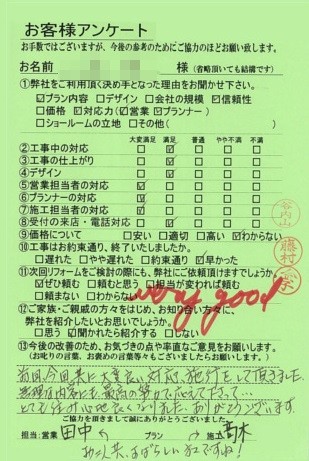 お客様アンケート
お手数ではございますが、今後の参考のためにご協力のほどお願い致します。
お名前 様（省略頂いても結構です）
①弊社をご利用頂く決め手となった理由をお聞かせ下さい。
☑プラン内容 □デザイン □会社の規模 ☑信頼性
□価格 ☑対応力（☑営業 ☑プランナー）
□ショールームの立地 □その他（ ）
大変満足 満足 普通 やや不満 不満
②工事中の対応 □ ☑ □ □ □
③工事の仕上がり □ ☑ □ □ □
④デザイン □ ☑ □ □ □
⑤営業担当者の対応 ☑ □ □ □ □
⑥プランナーの対応 ☑ □ □ □ □
⑦施工担当者の対応 ☑ □ □ □ □
⑧受付の来店・電話対応 □ ☑ □ □ □
⑨価格について □安い □適切 □高い ☑わからない
⑩工事はお約束通り、終了いたしましたか。
□遅れた □やや遅れた □約束通り ☑早かった
⑪次回リフォームをご検討の際にも、弊社にご依頼頂けますでしょうか
☑ぜひ頼む □頼むと思う □担当が変われば頼む
□頼まない □わからない
very good
⑫ご家族・ご親戚の方々をはじめ、お知り合い方々に、
弊社を紹介したいとお思いでしょうか。
□思う ☑聞かれたら紹介する □しない
⑬今後の改善のため、お気づきの点や率直なご意見をお願します。
（お叱りの言葉、お褒めの言葉等々もございましたらお願いします。）
前回、今回共に大変良い対応、施行をして頂きました。
とても住み心地良くなりました。ありがとうございます。
ご協力頂きまして誠にありがとうございました。
担当：営業 田中 プラン 施工 高木
藤村